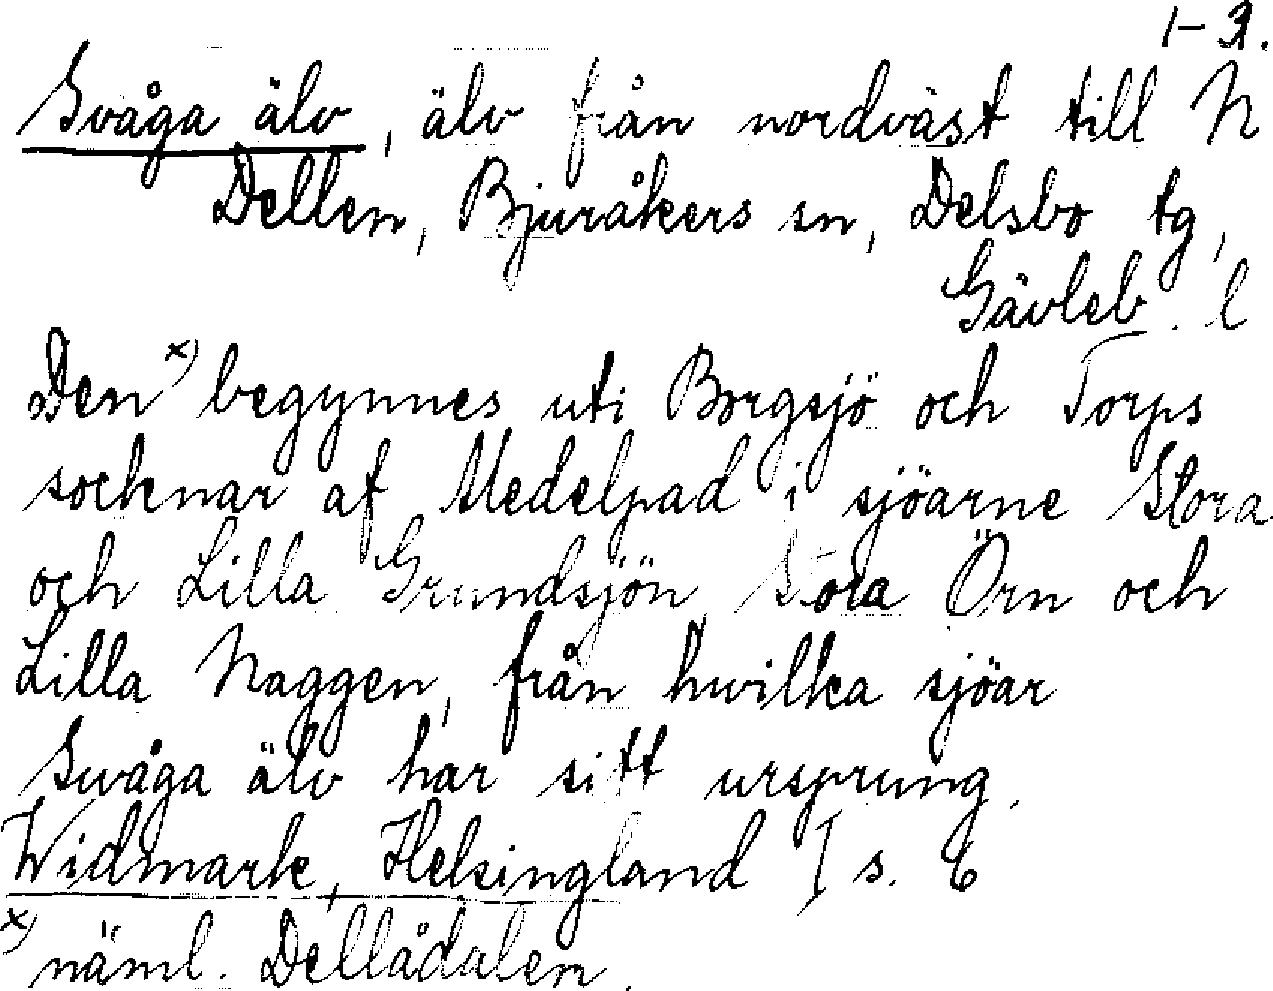 1-3.
Svåga älv, älv från nordväst till N
Dellen, Bjuråkers sn, Delsbo tg,
Gävleb. l
Den x) begynnes uti Borgsjö och Torps
socknar af Medelpad i sjöarne Stora
och Lilla Grundsjön, Stora Örn och
Lilla Naggen, från hwilka sjöar
Swåga älv har sitt ursprung.
Widmark, Helsingland I s. 6
x) näml. Dellådalen.